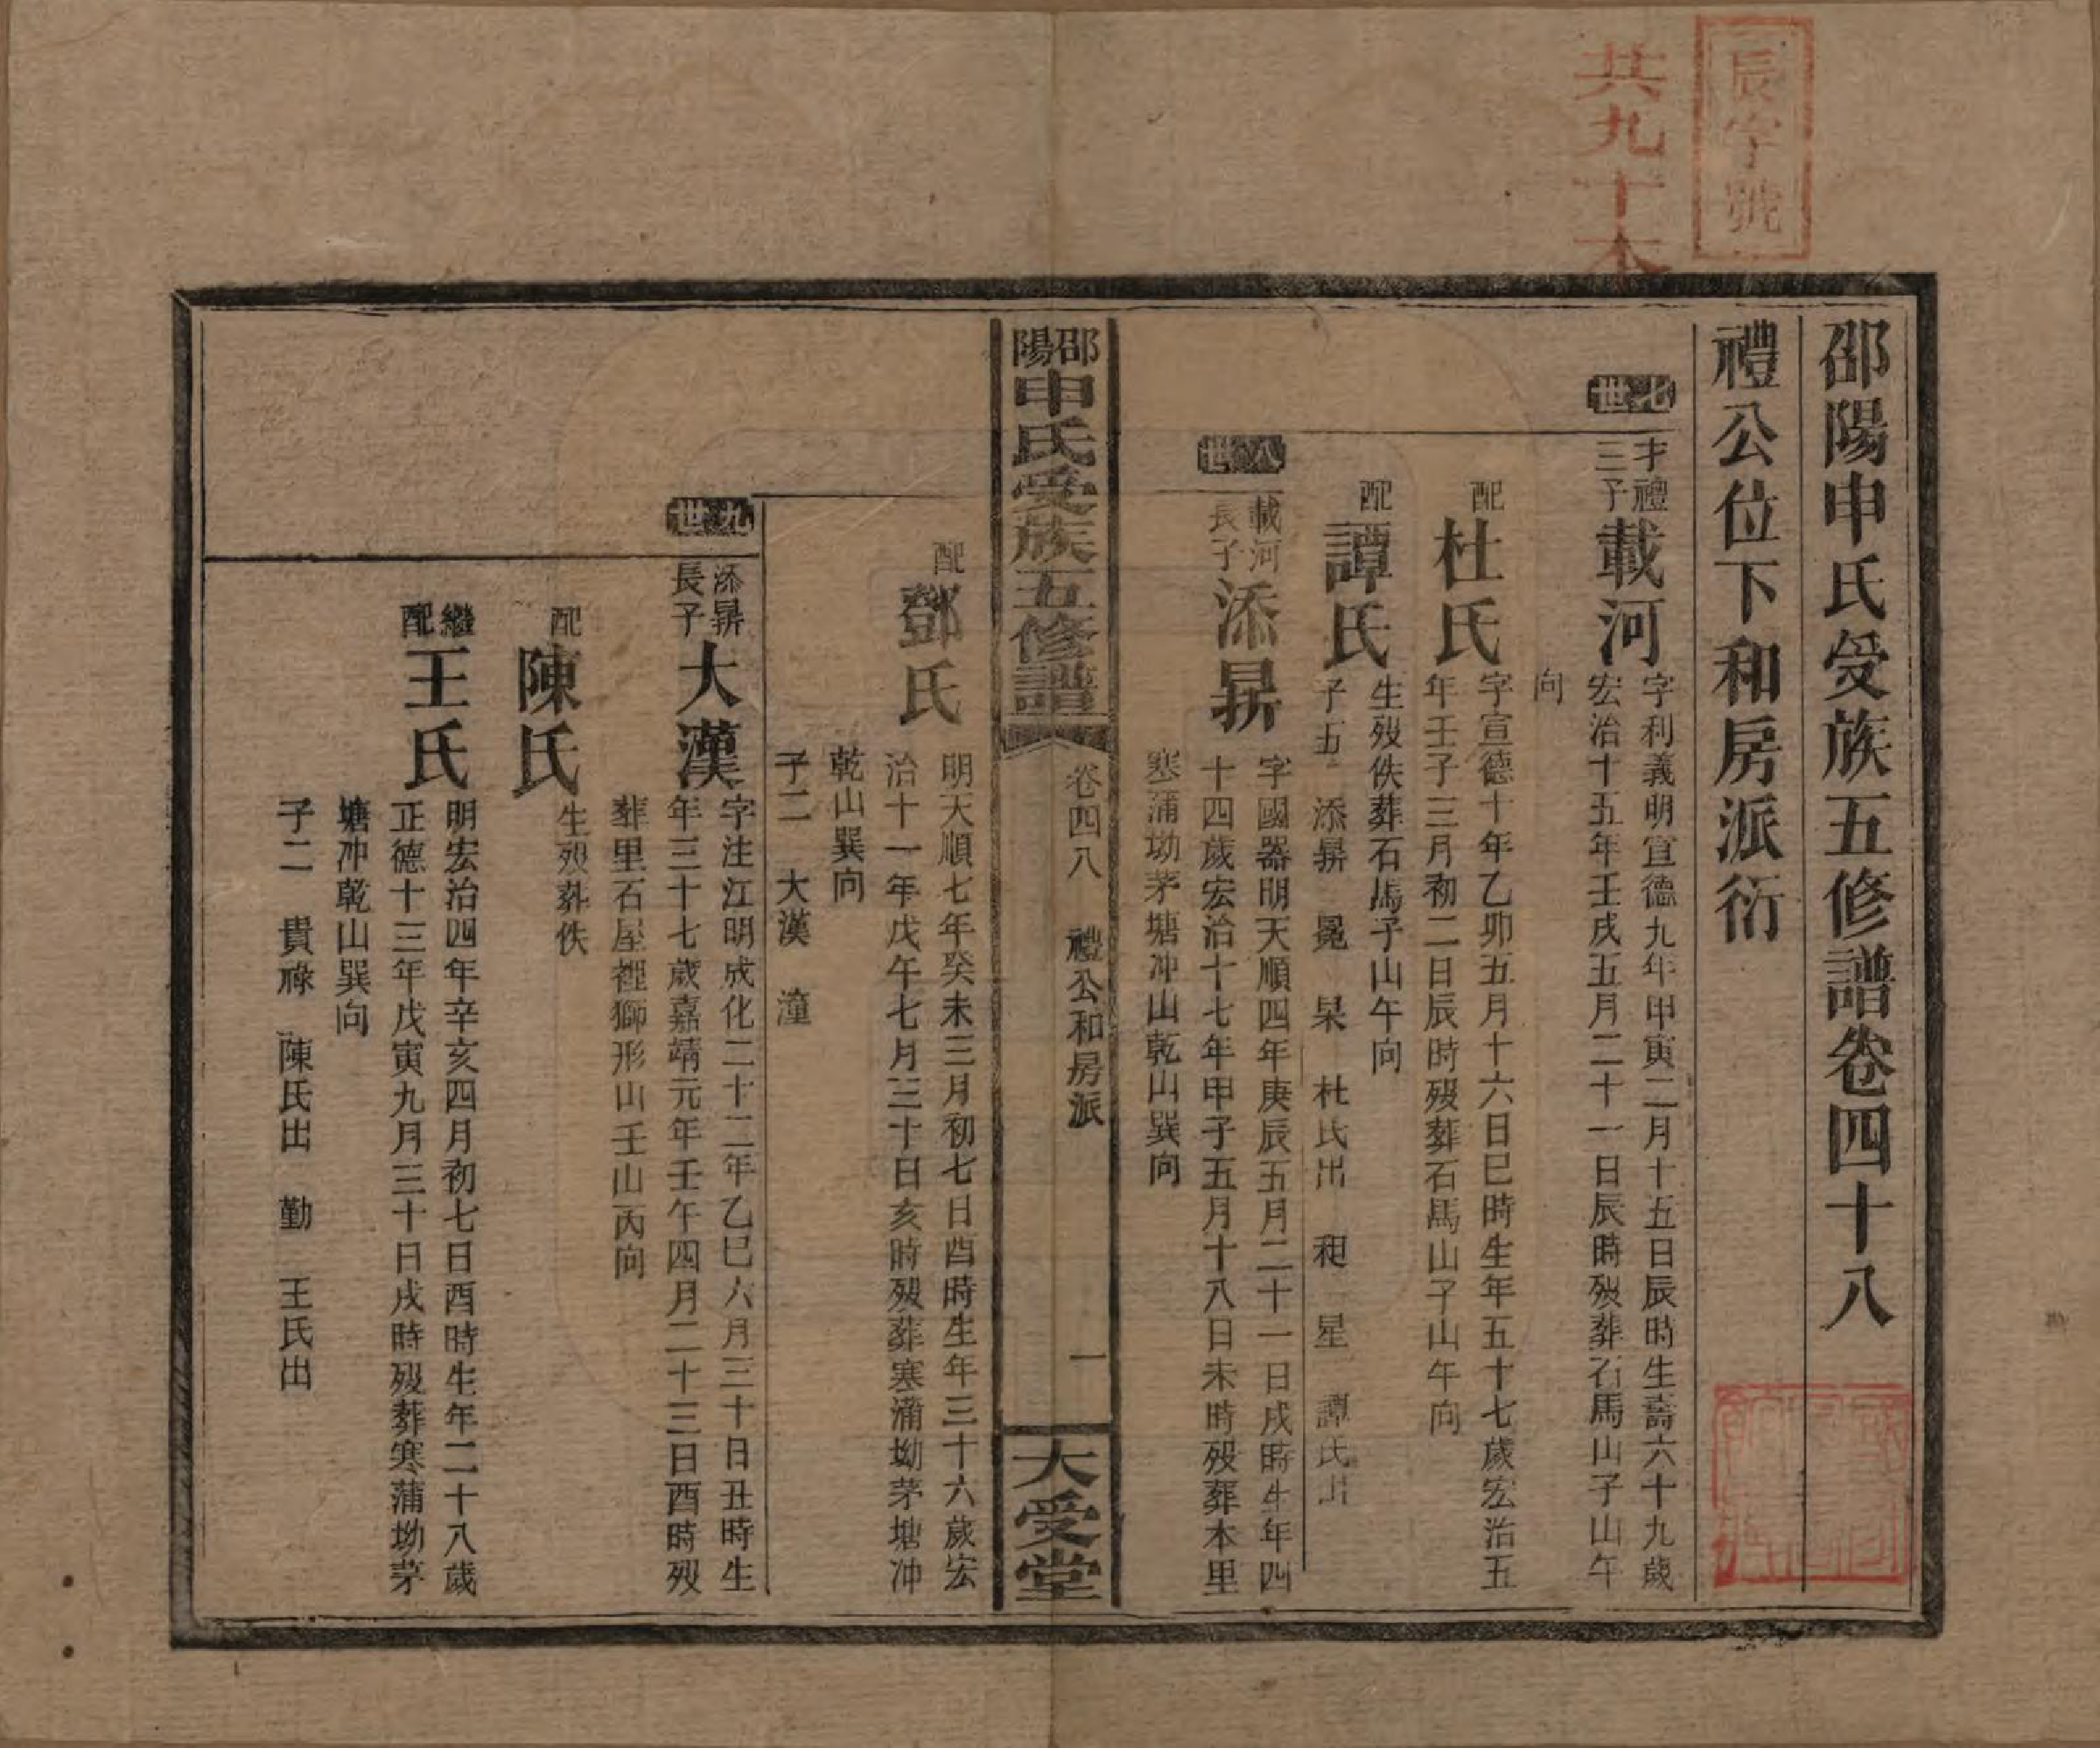 辰字號
共九十本
邵陽申氏受族五修譜卷四十八
禮公位下和房派衍
七世
才禮三子
載河
字利義明宣德九年甲寅二月十五日辰時生壽六十九歲
宏治十五年壬戌五月二十一日辰時歿葬石馬山子山午
向
配
杜氏
字宣德十年乙卯五月十六日巳時生年五十七歲宏治五
年壬子三月初二日辰時歿葬石馬山子山午向
配
譚氏
生歿佚葬石馬子山午向
子五 添昇 晃 杲 杜氏出 星 譚氏出
八世
載河長子
添昇
字國器明天順四年庚辰五月二十一日戌時生年四
十四歲宏治十七年甲子五月十八日未時歿葬本里
寒蒲坳茅塘冲山乾山巽向
邵陽申氏受族五修譜
卷四八 禮公和房派
一
大受堂
配
鄧氏
明天順七年癸未三月初七日酉時生年三十六歲宏
治十一年戊午七月三十日亥時歿葬寒蒲坳茅塘冲
乾山巽向
子二 大漢 潼
九世
添昇長子
大漢
字注江明成化二十二年乙巳六月三十日丑時生
年三十七歲嘉靖元年壬午四月二十三日酉時歿
葬里石屋裡獅形山壬山丙向
配
陳氏
生歿葬佚
繼配
王氏
明宏治四年辛亥四月初七日酉時生年二十八歲
正德十三年戊寅九月三十日戌時歿葬寒蒲坳茅
塘冲乾山巽向
子二 貴祿 陳氏出 勤 王氏出